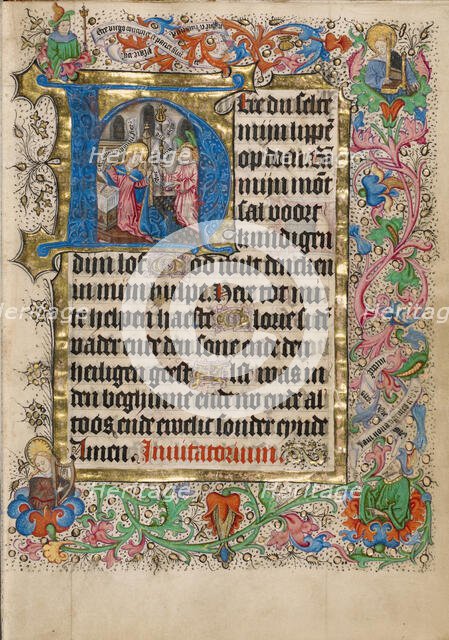 Here du selte
mijn lippē
op doen
mijn mōt
sal voort
kundigen
dijn lof God wilt dencken
in mijn hulpe Here tot mi
te helpen haeste Glorie si dē
vader ende den sone ende den
heiligen geest was in
den beghinne ende nu ende al
toos ende ewelic sonder eynde
Amen Inuitatorium
Heritage Heritage Heritage
Heritage Heritage
Heritage Heritage Heritage